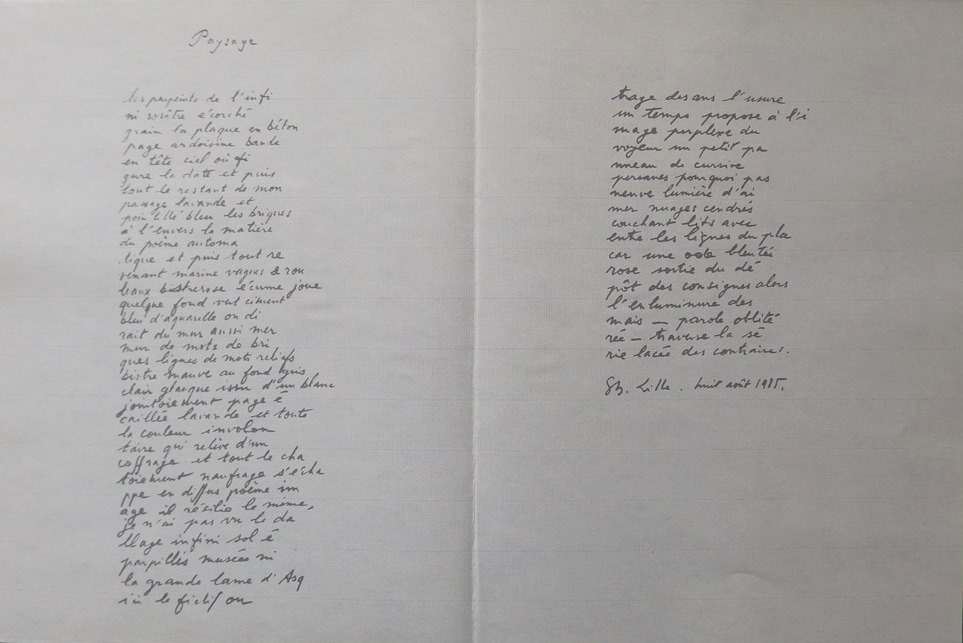 Paysage
les serpents de l'infi
ni rosâtre écorché
grain la plaque en béton
page ardoisine bande
en tête ciel où fi
gure la date et puis
tout le restant de mon
paysage lavande et
bleu les briques
à l'envers la matière
du poème automa
tique et puis tout re
venant marine vagues & rou
leaux bistrerose écume joue
quelque fond vert ciment
bleu d'aquarelle on di
rait du mur aussi mer
mur de mots de bri
ques lignes de mots reliefs
bistre mauve au fond gris
clair glauque issu d'un blanc
jointoiement page é
caillée lavande et toute
la couleur involon
taire qui relève d'un
coffrage et tout le cha
toiement naufrage s'écha
ppe en diffus poème im
age il résilie le mime,
je n'ai pas vu le da
llage infini sol é
parpillés musées ni
la grande lame d'Asq
ici le fictif ou
trage des ans l'usure
un temps propose à l'i
mage perplexe du
voyeur un petit pa
nneau de cursive
persanes pourquoi pas
neuve lumière d'ai
mer nuages cendrés
couchant lits avec
entre les lignes du pla
car une ode bleutée
rose sortie du dé
pôt des consignes alors
l'enluminure des
mais — parole oblité
rée — traverse la sé
rie lacée des contraires.
Lille. huit août 1985.